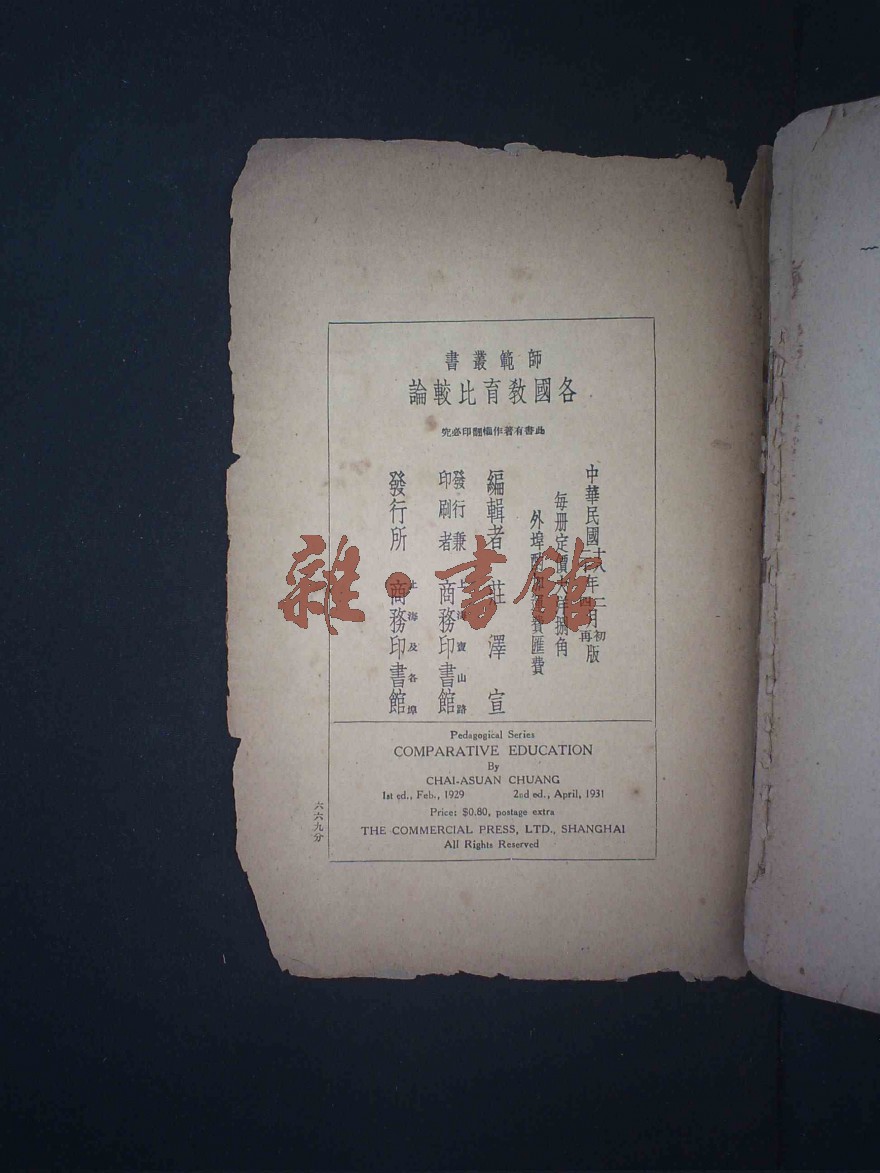 師範叢書
各國教育比較論
此書有著作權翻印必究
中華民國十八年二月初版
二十年四月再版
每冊定價大洋捌角
外埠酌加運費匯費
編輯者 莊澤宣
發行兼印刷者 上海寶山路 商務印書館
發行所 上海及各埠 商務印書館
Pedagogical Series
COMPARATIVE EDUCATION
By
CHAI-ASUAN CHUANG
1st ed., Feb., 1929 2nd ed., April, 1931
Price: $0.80, postage extra
THE COMMERCIAL PRESS, LTD., SHANGHAI
All Rights Reserved
六六九分
雜·書館